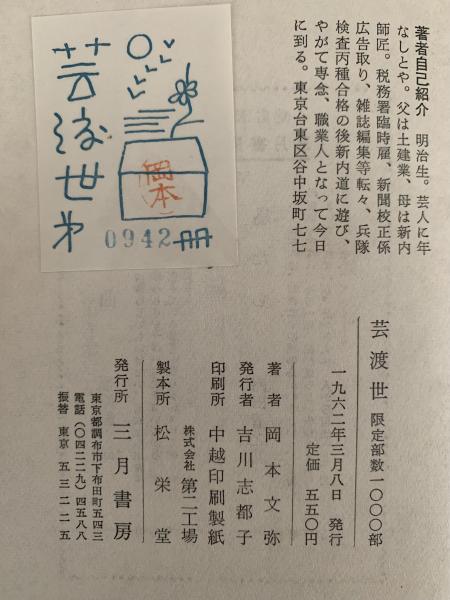 著者自己紹介　明治生。芸人に年
なしとや。父は土建業、母は新内
師匠。税務署臨時雇、新聞校正係
広告取り、雑誌編集等転々、兵隊
検査丙種合格の後新内道に遊び、
やがて専念、職業人となって今日
に到る。東京台東区谷中坂町七七
芸渡世
岡本
0942
芸渡世　限定部数一〇〇〇部
一九六二年三月八日　発行
定価　五五〇円
著者　岡本文弥
発行者　吉川志都子
印刷所　中越印刷製紙
株式会社　第二工場
製本所　松栄堂
発行所　三月書房
東京都調布市下布田町五四三
電話（〇四二二九）四五八八
振替　東京　五三二二五